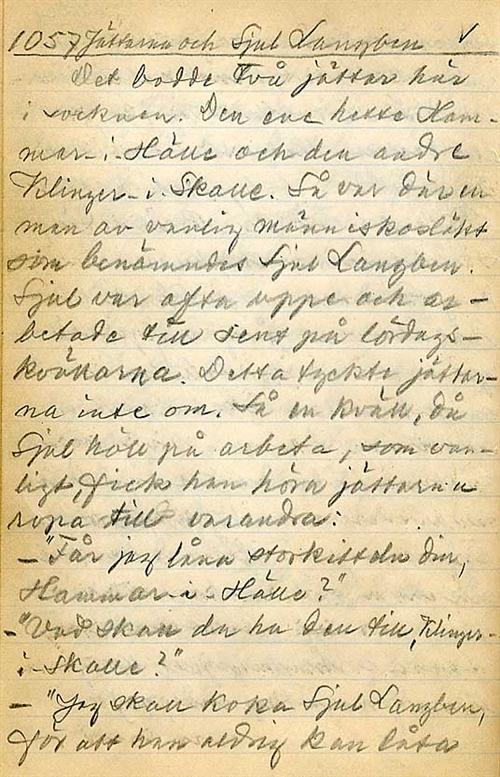 1057 Jättarna och Sjul Langben √
Det bodde två jättar här
i socknen. Den ene hette Ham-
mar-i-Hälle och den andre
Klinger-i-Skalle. Så var där en
man av vanlig människosläkt
som benämndes Sjul Langben.
Sjul var ofta uppe och ar-
betade till sent på lördags-
kvällarna. Detta tyckte jättar-
na inte om. Så en kväll, då
Sjul höll på arbeta, som van-
ligt, fick han höra jättarna
ropa till varandra:
– "Får jag låna storkitteln din,
Hammar-i-Hälle?"
– "Vad skall du ha den till, Klinger-
i-Skalle?"
– "Jag skall koka Sjul Langben,
för att han aldrig kan låta